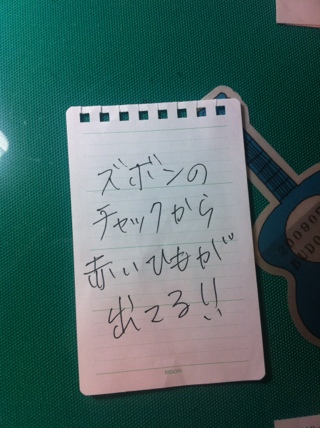 ズボンの
チャックから
赤いひもが
出てる!!